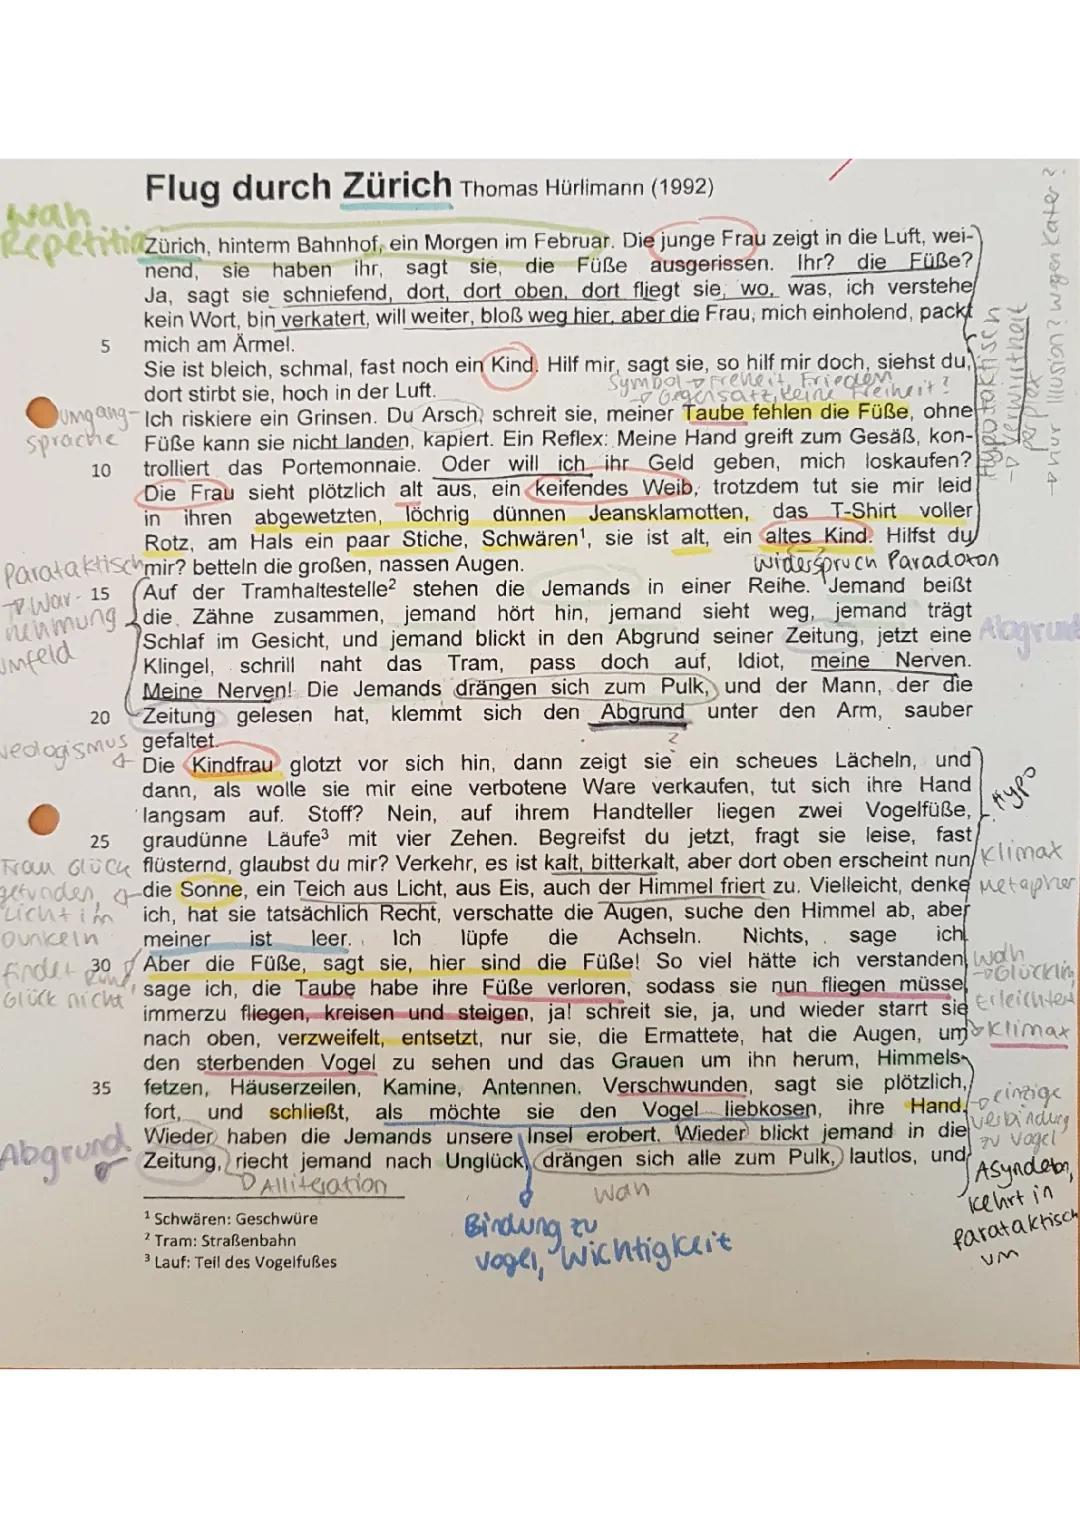 Flug durch Zürich Thomas Hürlimann (1992)
wdh
Repetitio
Zürich, hinterm Bahnhof, ein Morgen im Februar. Die junge Frau zeigt in die Luft, wei-
nend, sie haben ihr, sagt sie, die Füße ausgerissen. Ihr? die Füße?
Ja, sagt sie schniefend, dort, dort oben, dort fliegt sie, wo, was, ich verstehe
kein Wort, bin verkatert, will weiter, bloß weg hier, aber die Frau, mich einholend, packt
5 mich am Ärmel.
Sie ist bleich, schmal, fast noch ein Kind. Hilf mir, sagt sie, so hilf mir doch, siehst du,
Symbol → Freiheit, Frieden
dort stirbt sie, hoch in der Luft.
→ Gegensatz, keine Freiheit?
Ich riskiere ein Grinsen. Du Arsch, schreit sie, meiner Taube fehlen die Füße, ohne
Umgang-
sprache
Füße kann sie nicht landen, kapiert. Ein Reflex: Meine Hand greift zum Gesäß, kon-
10 trolliert das Portemonnaie. Oder will ich ihr Geld geben, mich loskaufen?
Die Frau sieht plötzlich alt aus, ein keifendes Weib, trotzdem tut sie mir leid
in ihren abgewetzten, löchrig dünnen Jeansklamotten, das T-Shirt voller
Rotz, am Hals ein paar Stiche, Schwären¹, sie ist alt, ein altes Kind. Hilfst du
mir? betteln die großen, nassen Augen.
Widerspruch Paradoxon
Hypotaktisch
→ Verwirrtheit
perplex
→ nur Illusion? wegen Kater?
Parataktisch
→ War-
nehmung
Umfeld
15 Auf der Tramhaltestelle² stehen die Jemands in einer Reihe. Jemand beißt
die Zähne zusammen, jemand hört hin, jemand sieht weg, jemand trägt
Schlaf im Gesicht, und jemand blickt in den Abgrund seiner Zeitung, jetzt eine
Abgrund
Klingel, schrill naht das Tram, pass doch auf, Idiot, meine Nerven.
Meine Nerven! Die Jemands drängen sich zum Pulk, und der Mann, der die
20 Zeitung gelesen hat, klemmt sich den Abgrund unter den Arm, sauber
gefaltet.
?
Neologismus
Die Kindfrau glotzt vor sich hin, dann zeigt sie ein scheues Lächeln, und
dann, als wolle sie mir eine verbotene Ware verkaufen, tut sich ihre Hand
langsam auf. Stoff? Nein, auf ihrem Handteller liegen zwei Vogelfüße,
Hypo
25 graudünne Läufe³ mit vier Zehen. Begreifst du jetzt, fragt sie leise, fast
flüsternd, glaubst du mir? Verkehr, es ist kalt, bitterkalt, aber dort oben erscheint nun
Klimax
die Sonne, ein Teich aus Licht, aus Eis, auch der Himmel friert zu. Vielleicht, denke
Metapher
ich, hat sie tatsächlich Recht, verschatte die Augen, suche den Himmel ab, aber
meiner ist leer. Ich lüpfe die Achseln. Nichts, sage ich.
Frau Glück
gefunden,
Licht im
Dunkeln
findet Ruhe,
Glück nicht
30 Aber die Füße, sagt sie, hier sind die Füße! So viel hätte ich verstanden,
sage ich, die Taube habe ihre Füße verloren, sodass sie nun fliegen müsse,
wdh
→ Glücklich
Erleichtert
immerzu fliegen, kreisen und steigen, ja! schreit sie, ja, und wieder starrt sie
nach oben, verzweifelt, entsetzt, nur sie, die Ermattete, hat die Augen, um
→ Klimax
den sterbenden Vogel zu sehen und das Grauen um ihn herum, Himmels-
35 fetzen, Häuserzeilen, Kamine, Antennen. Verschwunden, sagt sie plötzlich,
fort, und schließt, als möchte sie den Vogel liebkosen, ihre Hand.
→ einzige
Verbindung
zu Vogel
Wieder haben die Jemands unsere Insel erobert. Wieder blickt jemand in die
Abgrund
Zeitung, riecht jemand nach Unglück, drängen sich alle zum Pulk, lautlos, und
Asyndeton,
kehrt in
parataktisch
um
Alliteration
wdh
Bindung zu
Vogel, Wichtigkeit
¹ Schwären: Geschwüre
² Tram: Straßenbahn
³ Lauf: Teil des Vogelfußes